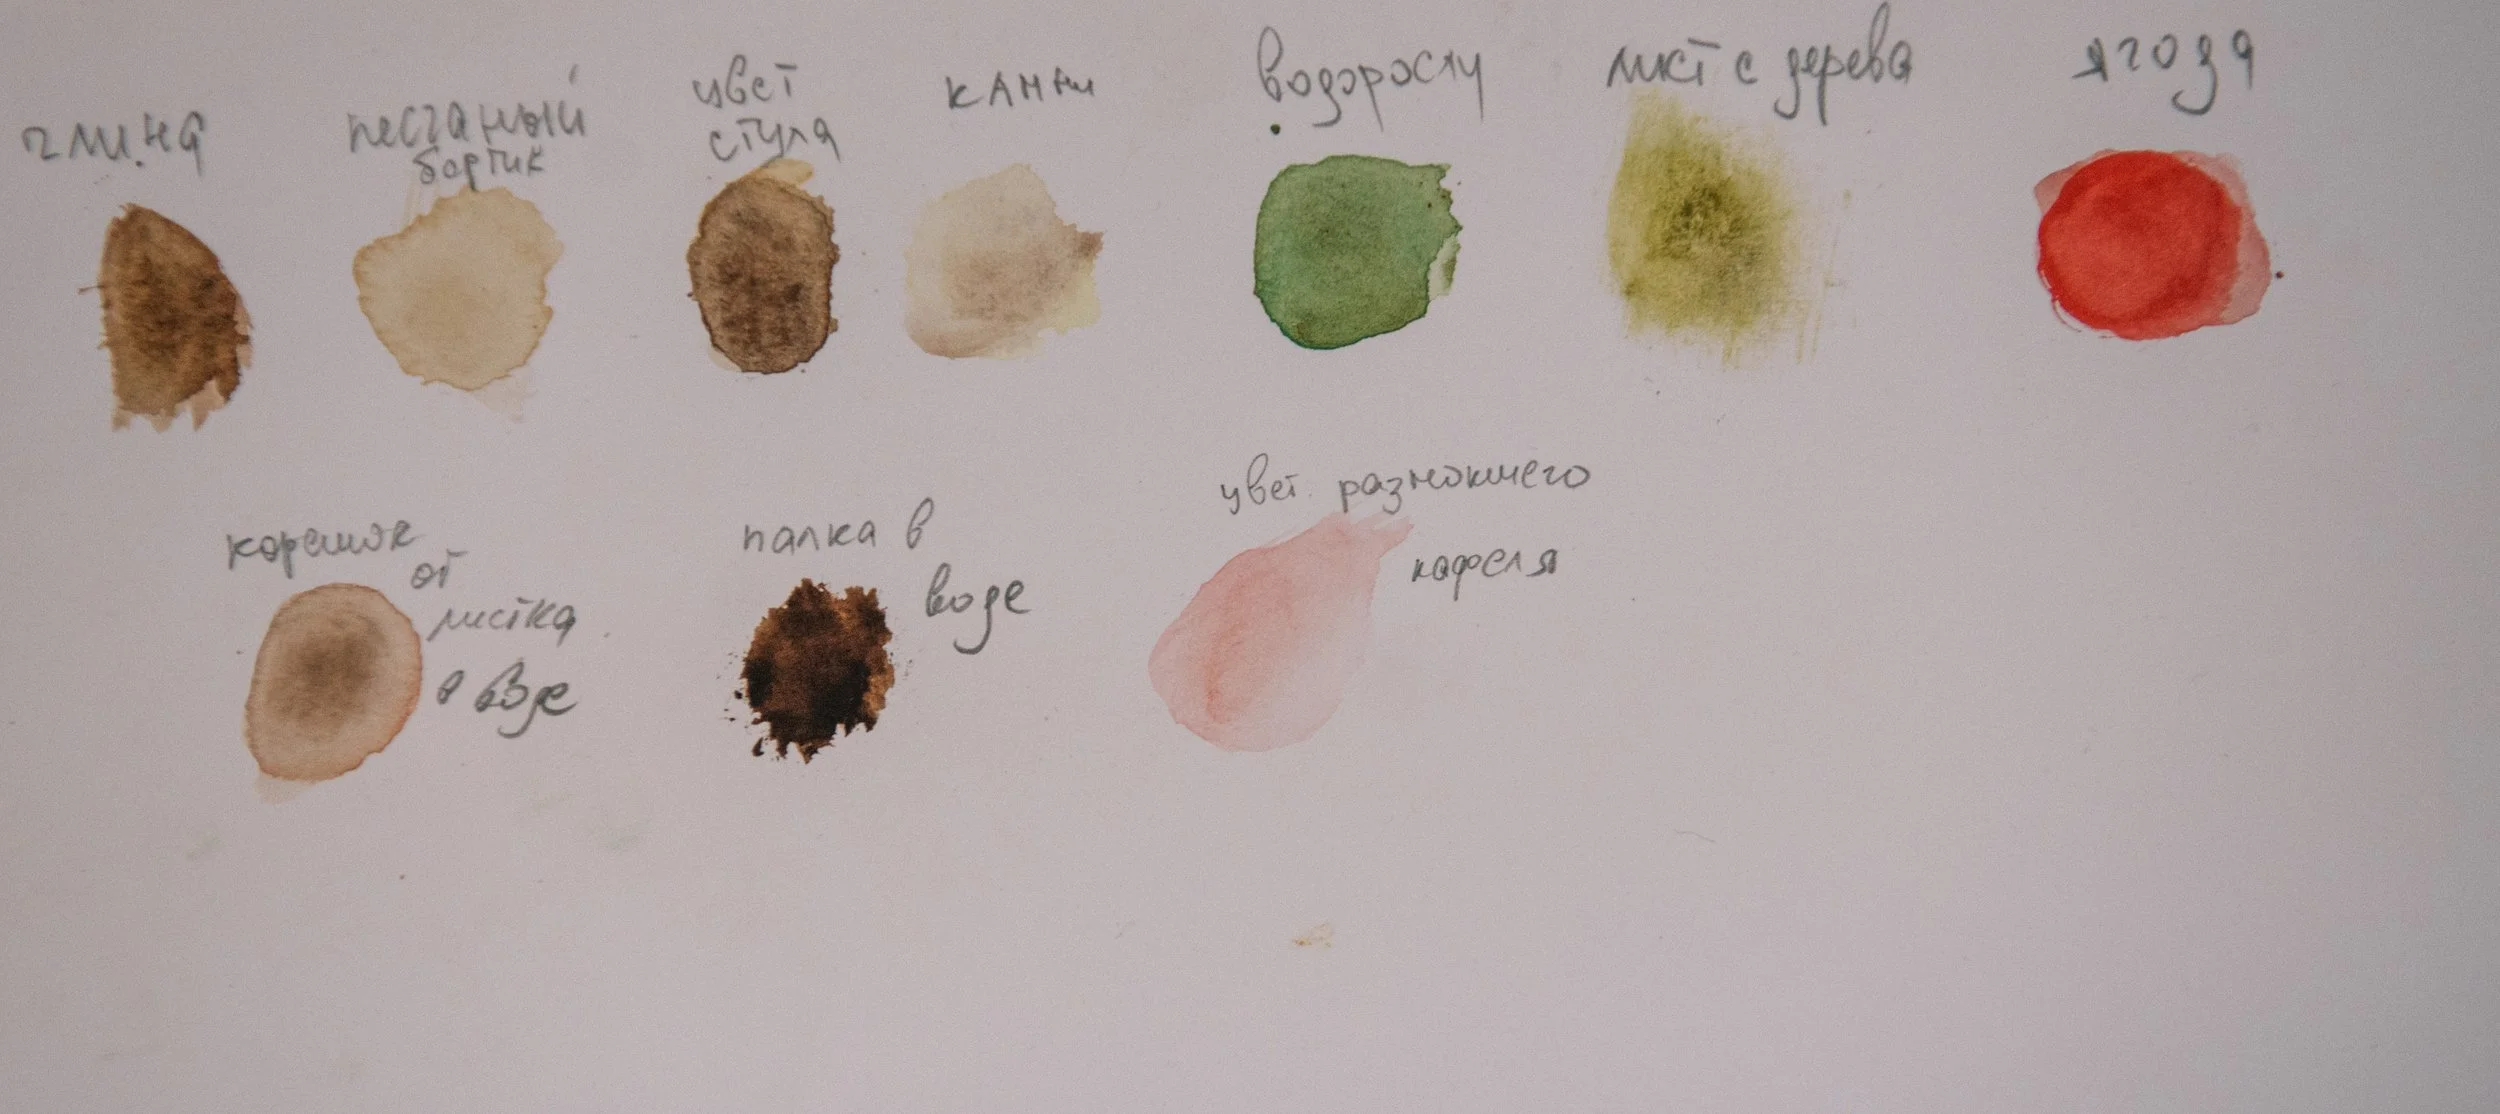 глина
песчаный
бортик
цвет
стула
камни
водоросли
лист с дерева
ягода
корешок
от
листка
в воде
палка в
воде
цвет размокшего
кафеля